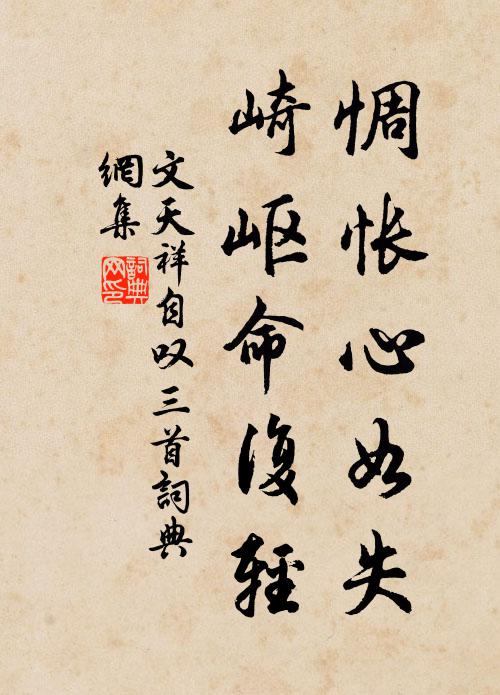 惆怅心如失
崎岖命復輕
文天祥自叹三首詞典
網集
詞典網印